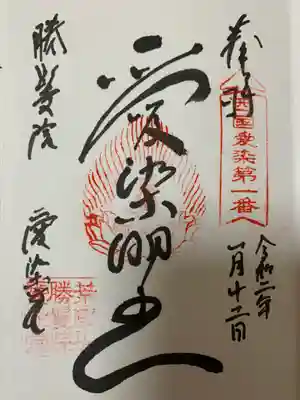 奉拝
西国愛染第一番
令和二年
一月十二日
愛染明王
勝鬘院
愛染堂